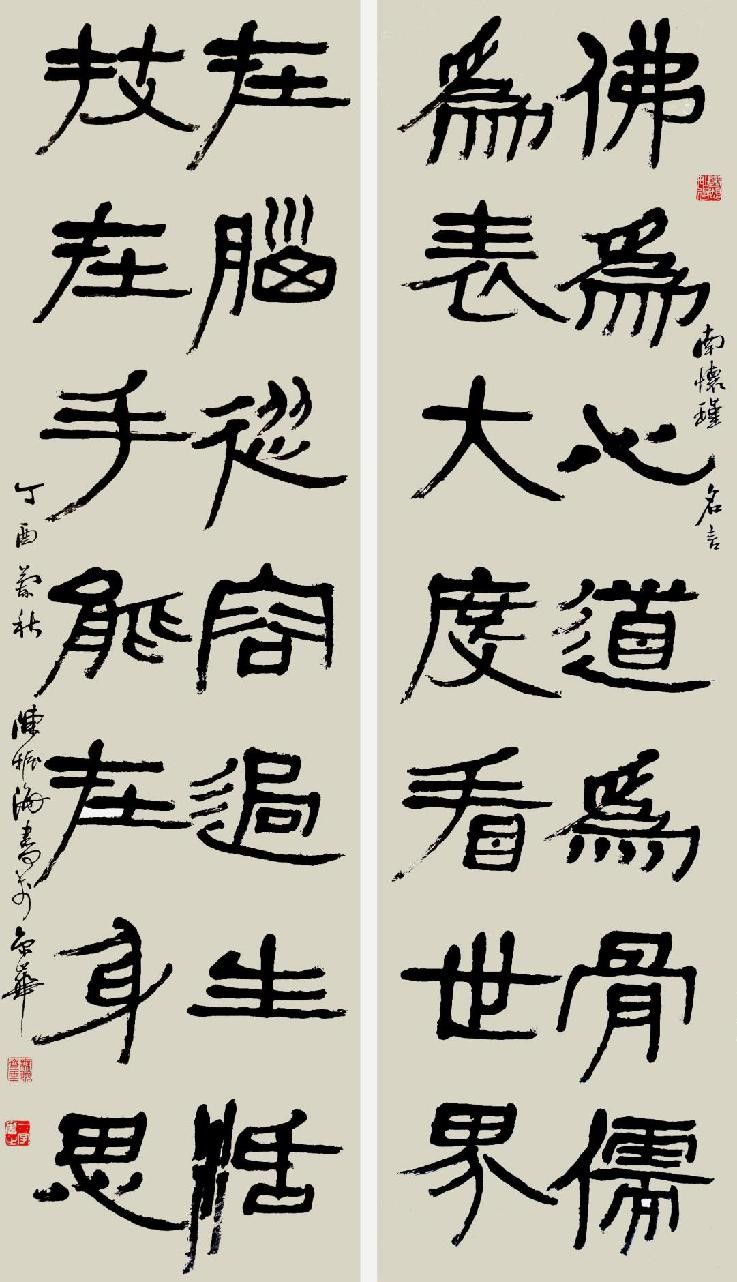 南懷瑾名言
佛爲心道爲骨儒
爲表大度看世界
技在手能在身思
在腦從容過生活
丁酉秋 陳振海書於京華